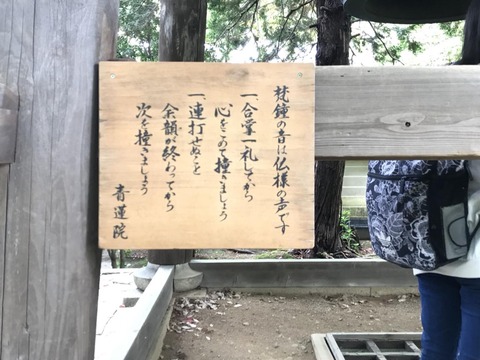 梵鐘の音は仏様の声です
一、合掌一礼してから
心をこめて撞きましょう
一、連打せぬことを
余韻が終わってから
次を撞きましょう
青蓮院